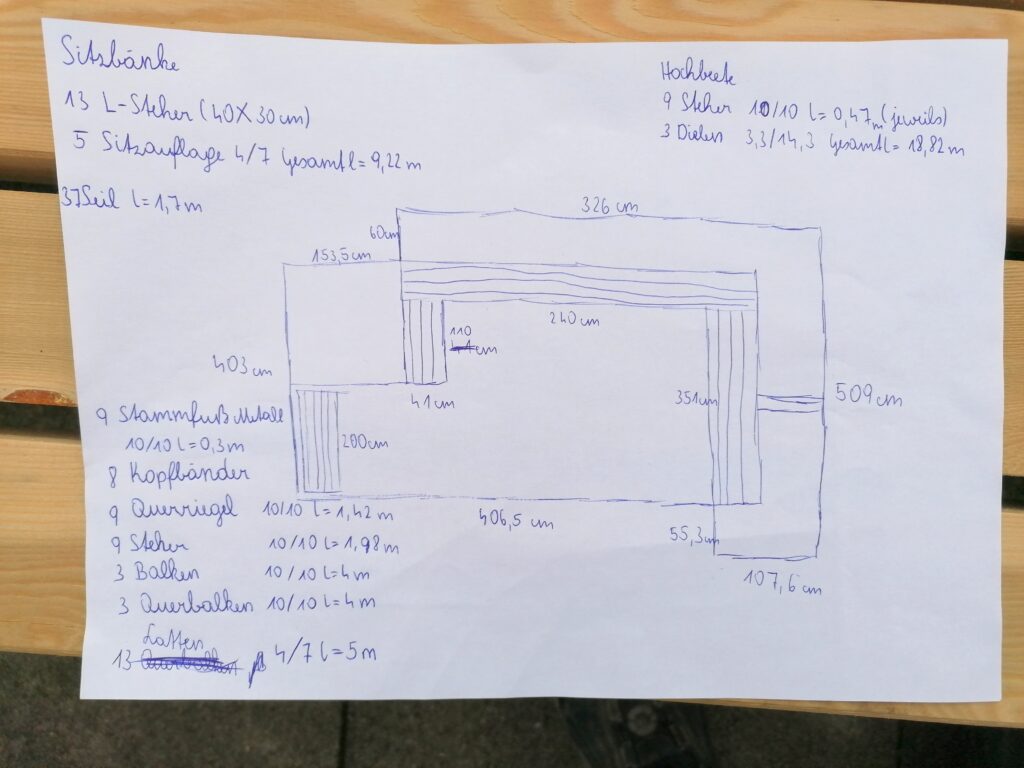 Sitzbänke
13 L-Steher (40X30cm)
5 Sitzauflage 4/7 Gesamtl= 9,22 m
37 Seil l= 1,7m
Hochbeete
9 Steher 10/10 l= 0,47m (jeweils)
3 Dielen 3,3/14,3 Gesamtl= 18,82 m
326 cm
60cm
153,5cm
240 cm
110
cm
403 cm
41cm
351cm
509cm
200cm
406,5 cm
55,3cm
107,6 cm
9 Stammfuß Metall
10/10 l=0,3m
8 Kopfbänder
9 Querriegel 10/10 l=1,42m
9 Steher 10/10 l=1,98m
3 Balken 10/10 l=4m
3 Querbalken 10/10 l=4m
Latten
13 4/7 l=5m